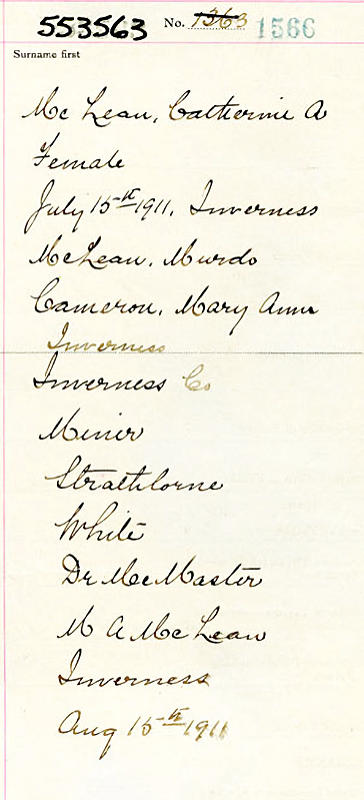 553563 No. 1363 1566
Surname first
McLean, Catherine A
Female
July 15th 1911, Inverness
McLean, Murdo
Cameron, Mary Ann
Inverness
Inverness Co
Miner
Strathlorne
White
Dr McMaster
M A McLean
Inverness
Aug 15th 1911